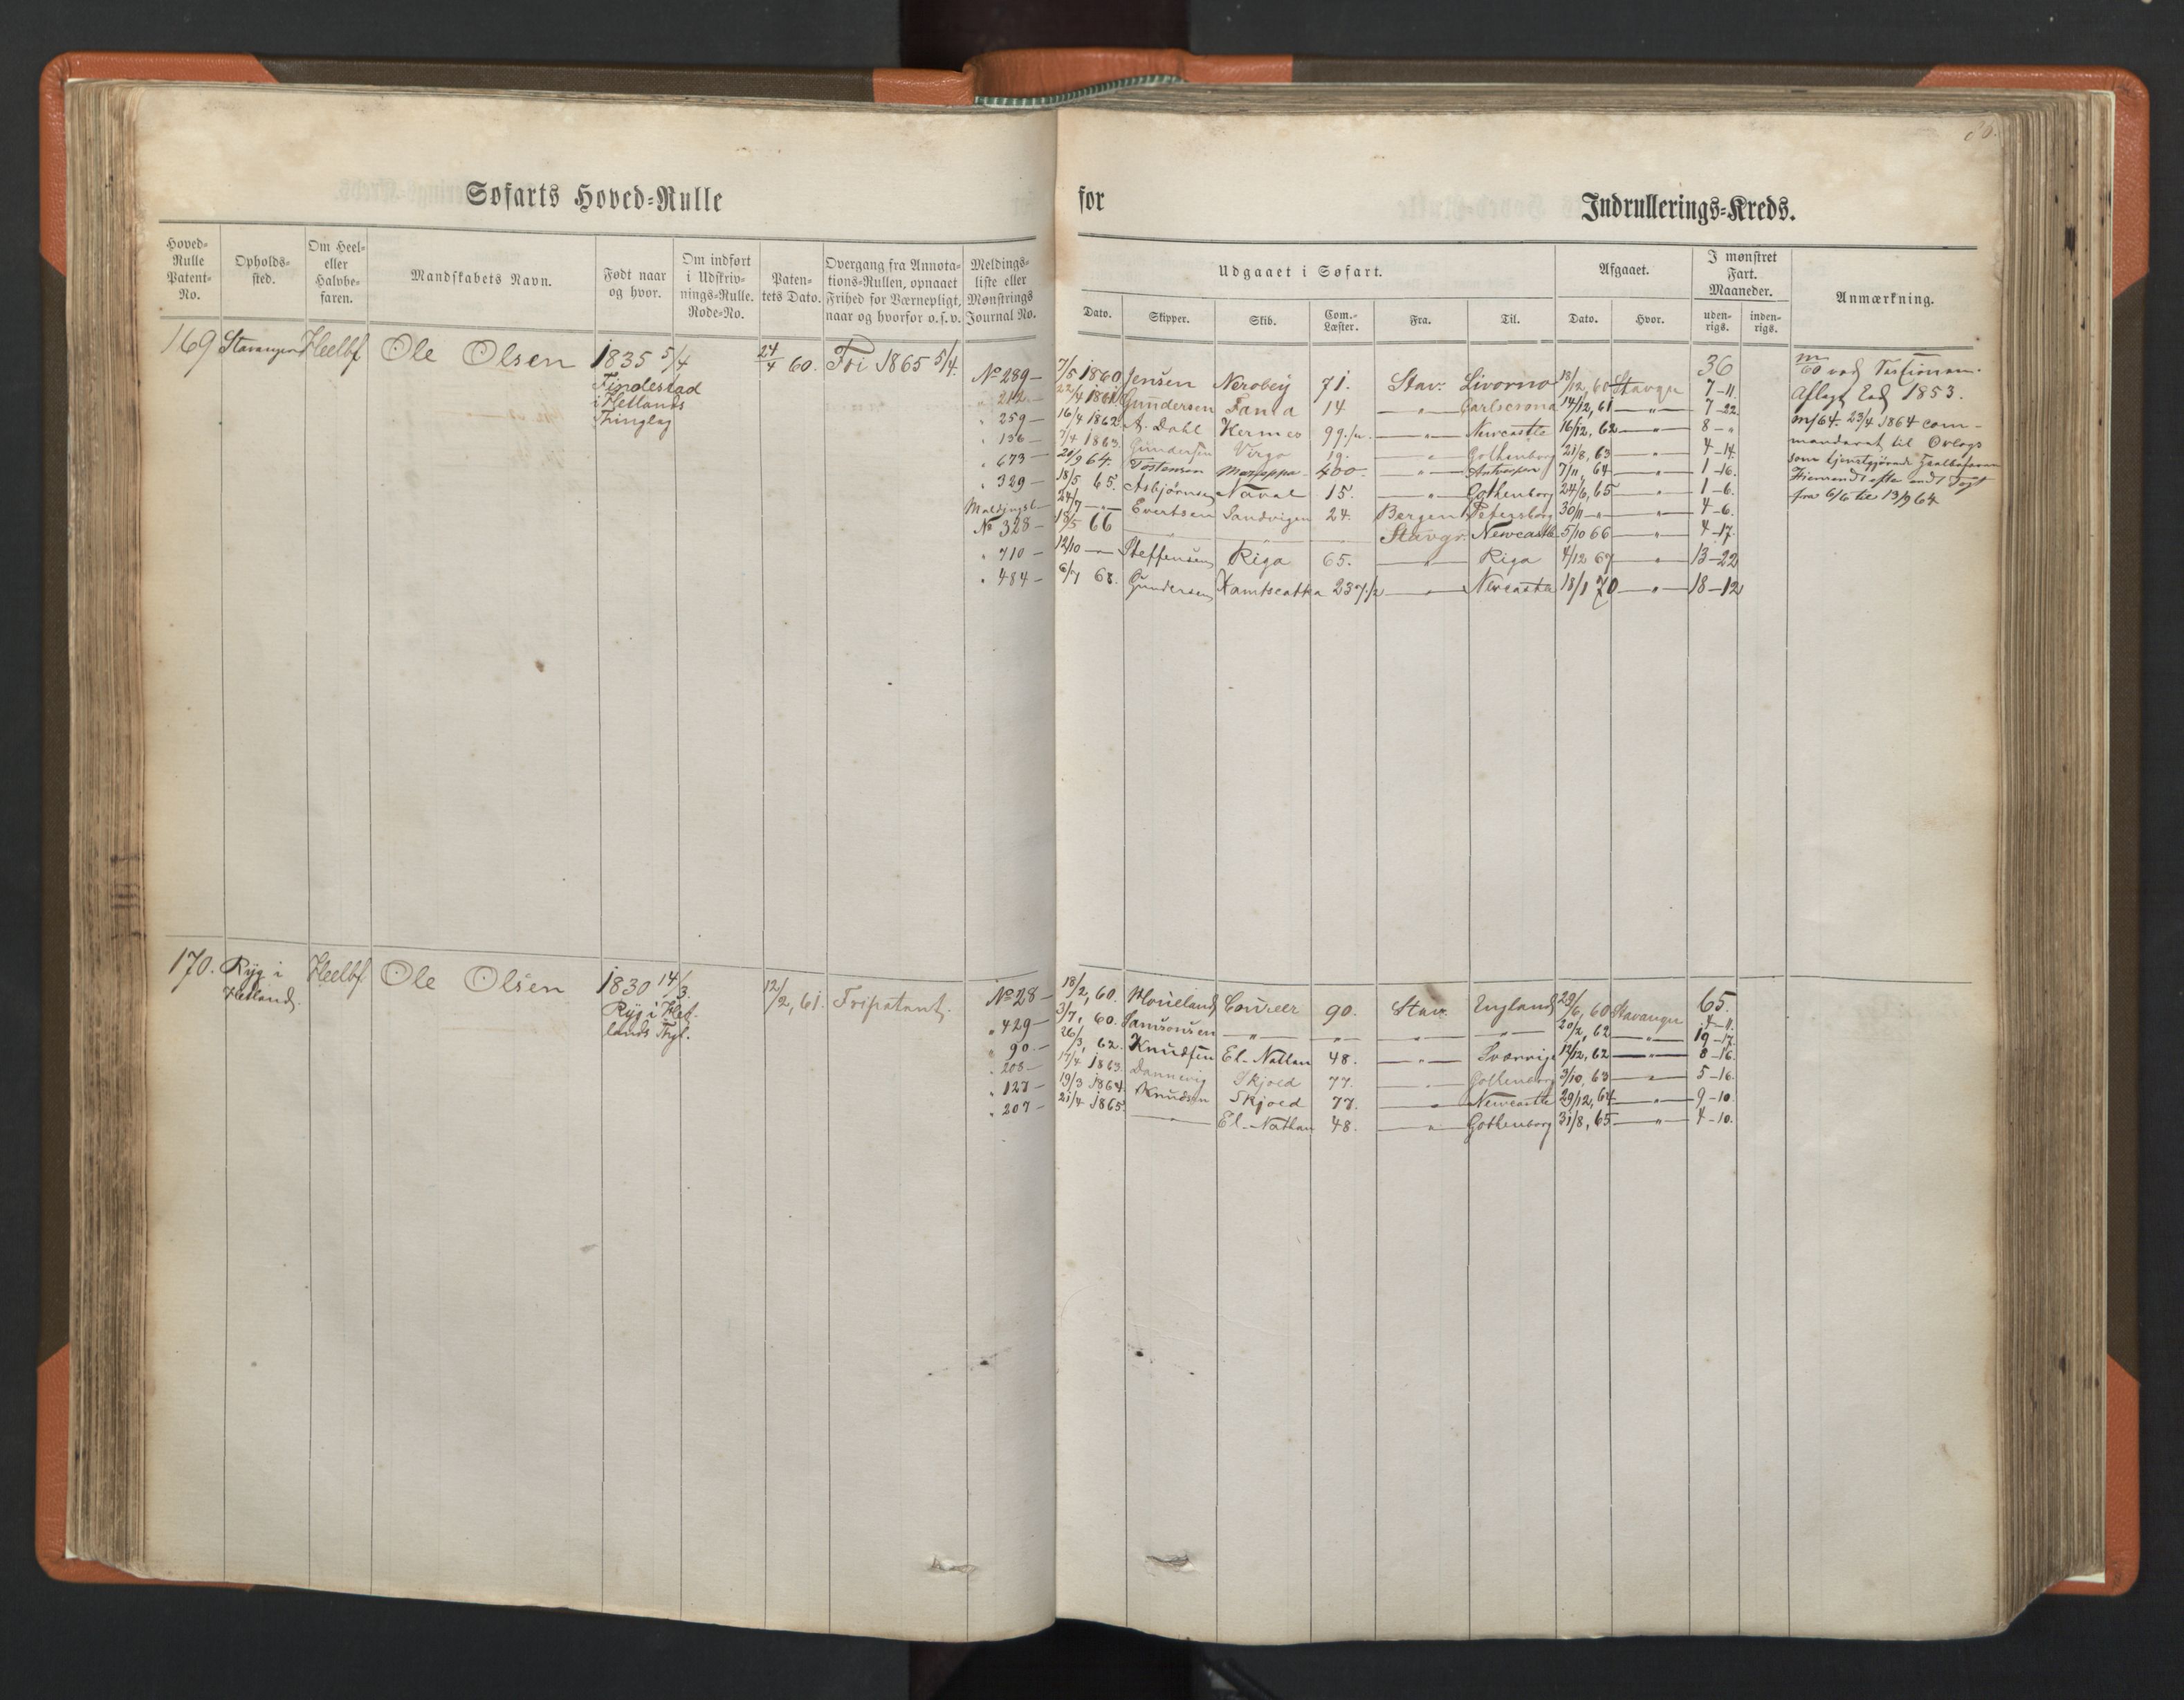 80.
Søfarts Hoved-Rulle for Indrullerings-Kreds.
Hoved-Rulle Patent-No. Opholds-sted. Om Heel- eller Halvbe-faren. Mandskabets Navn. Født naar og hvor. Om indført i Udskriv-nings-Rulle. Rode-No. Paten-tets Dato. Overgang fra Annota-tions-Rullen, opnaaet Frihed for Værnepligt, naar og hvorfor o.s.v. Meldings-liste eller Mønstrings Journal No.
Udgaaet i Søfart. Afgaaet. I mønstret Fart. Maaneder. Anmærkning.
Dato. Skipper. Skib. Com.-Læster. Fra. Til. Dato. Hvor. uden-rigs. inden-rigs.
169 Stavanger Heelbf. Ole Olsen 1835 5/4 24/4 60. Fri 1865 5/4.
Findestad
i Hetlands
Thinglag
36
No 289 – 7/5 1860 Jensen Nerobey 71. Stav: Livorno 18/12, 60 Stavgr 7–11.
" 212 – 22/4 1861 Gundersen Fama 14 — " — Carlscrona 14/12, 61 — " — 7–22.
" 259 – 16/4 1862 A. Dahl Hermes 99. — " — Newcastle 16/12, 62 — " — 8 – "
" 136 – 7/4 1863. Gundersen Virgo 19. — " — Gothenborg 21/8, 63 — " — 4–14.
" 673 – 20/9 64. Tostensen 400 — " — Antwerpen 7/11, 64 — " — 1–16.
" 329 – 18/5 65. Asbjørnsen Naval 15. — " — Gothenborg 24/6, 65 — " — 1–6.
24/7 — " — Evertsen Sandvigen 24. Bergen Petersborg 30/11 – " – — " — 4–6.
No 328 – 18/5 66 — — — Stavgr. Newcastle 5/10 66 — " — 4–17.
" 710 – 12/10 — Steffensen Riga 65. — " — Riga 4/12 67 — " — 13–22
" 484 – 6/7 68. Gundersen Kamtscatka 237 1/2 — " — Newcastle 18/1 70 — " — 18–12
Aflagt Ed 1853.
m/64. 23/4 1864 com-
manderet til Orlogs
som tjenstgjørende Heelbefaren
Hiemsendt efter endt Togt
fra 6/6 til 13/9 64
170. Ryg i Heelbf. Ole Olsen 1830 14/3. 12/2, 61. Fripatent.
Hetland.
Ryg i Het-
lands Thgl.
65.
No 28 – 18/2, 60. Moueland Coureer 90. Stav. England 29/6, 60 Stavanger 4–11.
" 429 – 3/7, 60. Samsonsen — " — — " — — " — — " — 20/2, 62 — " — 19–17.
" 90. – 26/3, 62. Knudsen El-Nathan 48. — " — Sverrige 12/12, 62 — " — 8–16.
" 208 – 17/4 1863. Dannevig Skjold 77. — " — Gothenborg 3/10, 63 — " — 5–16.
" 127 – 13/3 1864. Knudsen Skjold 77. — " — Newcastle 29/12, 64 — " — 9–10.
" 207 – 21/4 1865. — " — El-Nathan 48. — " — Gothenborg 31/8, 65 — " — 4–10.